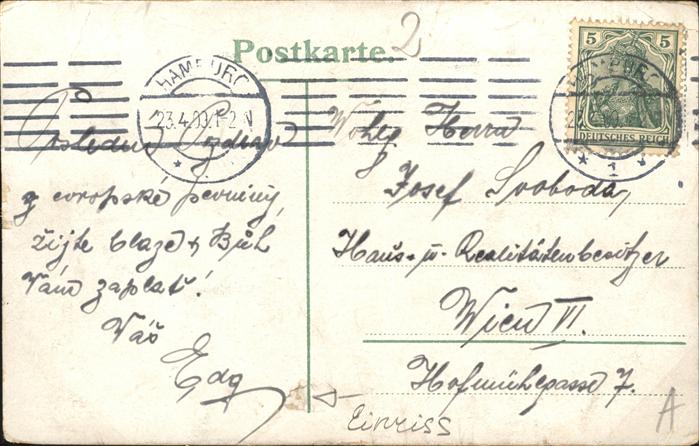 Postkarte.
2
HAMBURG
23.4.09.1-2 N
* 1 *
5 5
DEUTSCHES REICH
Poslední Pozdrav
z evropské pevniny,
žijte blaze & Bůh
Vám zaplať!
Váš
Edg
Wohlg Herrn
Josef Svoboda,
Haus- u- Realitätenbesitzer
Wien VI.
Hofmühlgasse 7.
Einriss
A